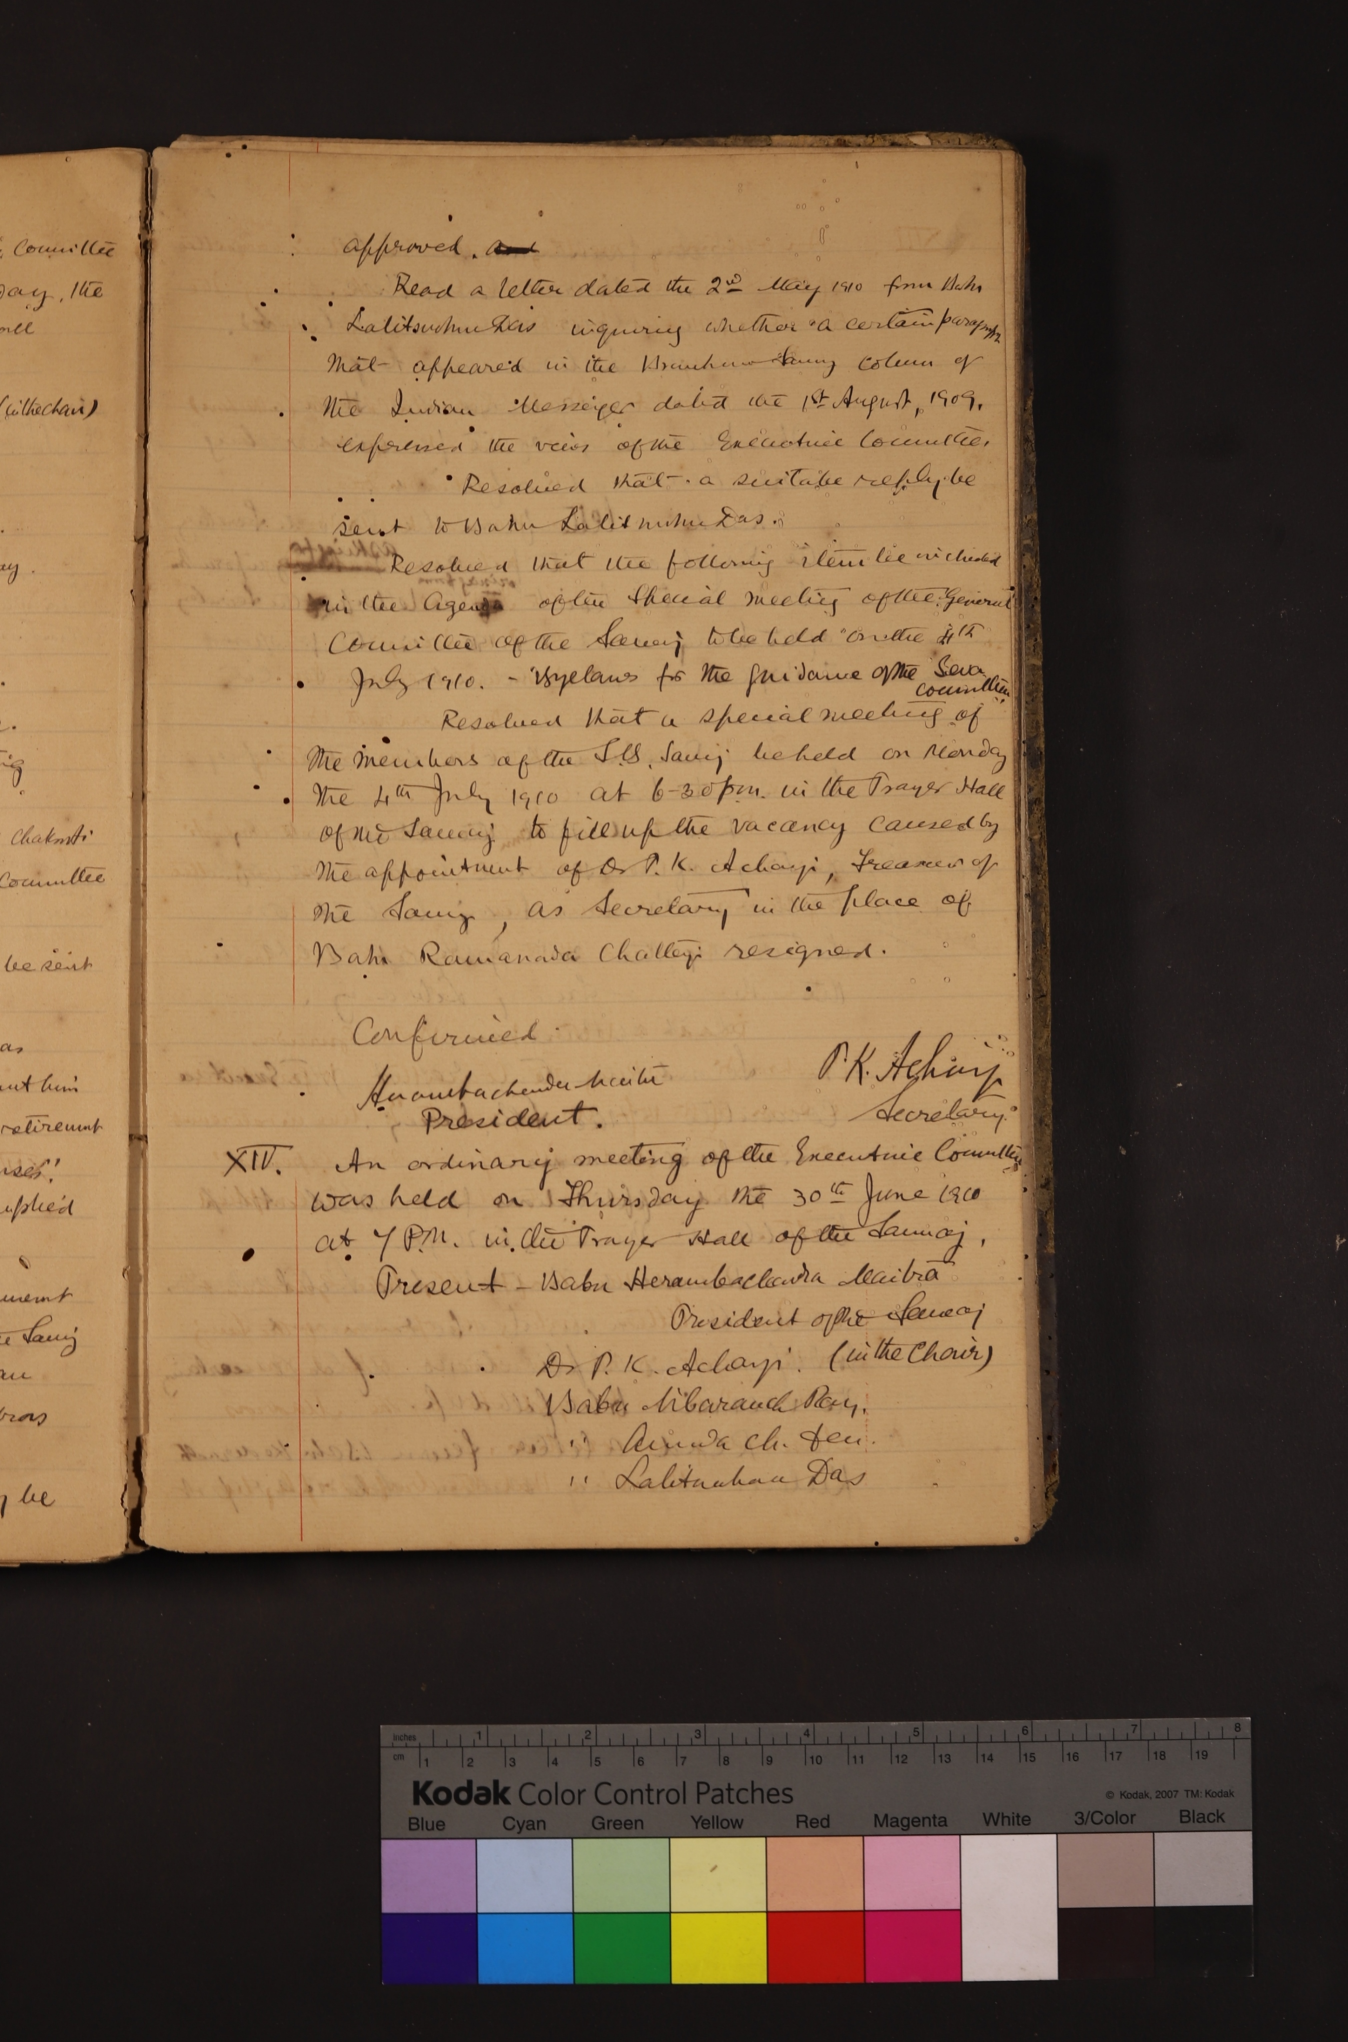 Committee
day, the
(in the chair)
Chakrabti
Committee
be sent
as
ant him
retirement
uphed
Samj
be
approved. and
Read a letter dated the 2nd May 1910 from Babu
Lalitmohun Das inquiring whether a certain paragraph
that appeared in the Bramhmo Samj colum of
the Indian Messenger dated the 1st August, 1909.
expressed the views of the Executive Committee.
Resolved that a suitabe reply be
sent to Babu Lalitmohun Das.
Resolved that the following item be included
in the Agenda of the Special meeting of the General
Committee of the Samaj to be held on the 4th
July 1910. - Byelaws for the guidance of the Seva
Committee.
Resolved that a special meeting of
the members of the S.B. Samj be held on Monday
the 4th July 1910 at 6-30 p.m. in the Prayer Hall
of the Samaj to fill up the vacancy caused by
the appointment of Dr P. K. Acharji, Treasurer of
the Samaj, as Secretary in the place of
Babu Ramananda Chatterji resigned.
Confirmed
Herambachandra Maitra
President.
P. K. Acharji
Secretary.
XIV. An ordinary meeting of the Executive Committee
was held on Thursday the 30th June 1910
at 7 P.M. in the Prayer Hall of the Samaj.
Present - Babu Herambachandra Maitra
President of the Samaj
(in the Chair)
Dr P. K. Acharji.
Babu Nibaranch Roy.
" Annada Ch. Sen.
" Lalitmohan Das
inches 1 2 3 4 5 6 7 8
cm 1 2 3 4 5 6 7 8 9 10 11 12 13 14 15 16 17 18 19
Kodak Color Control Patches
© Kodak, 2007 TM: Kodak
Blue Cyan Green Yellow Red Magenta White 3/Color Black